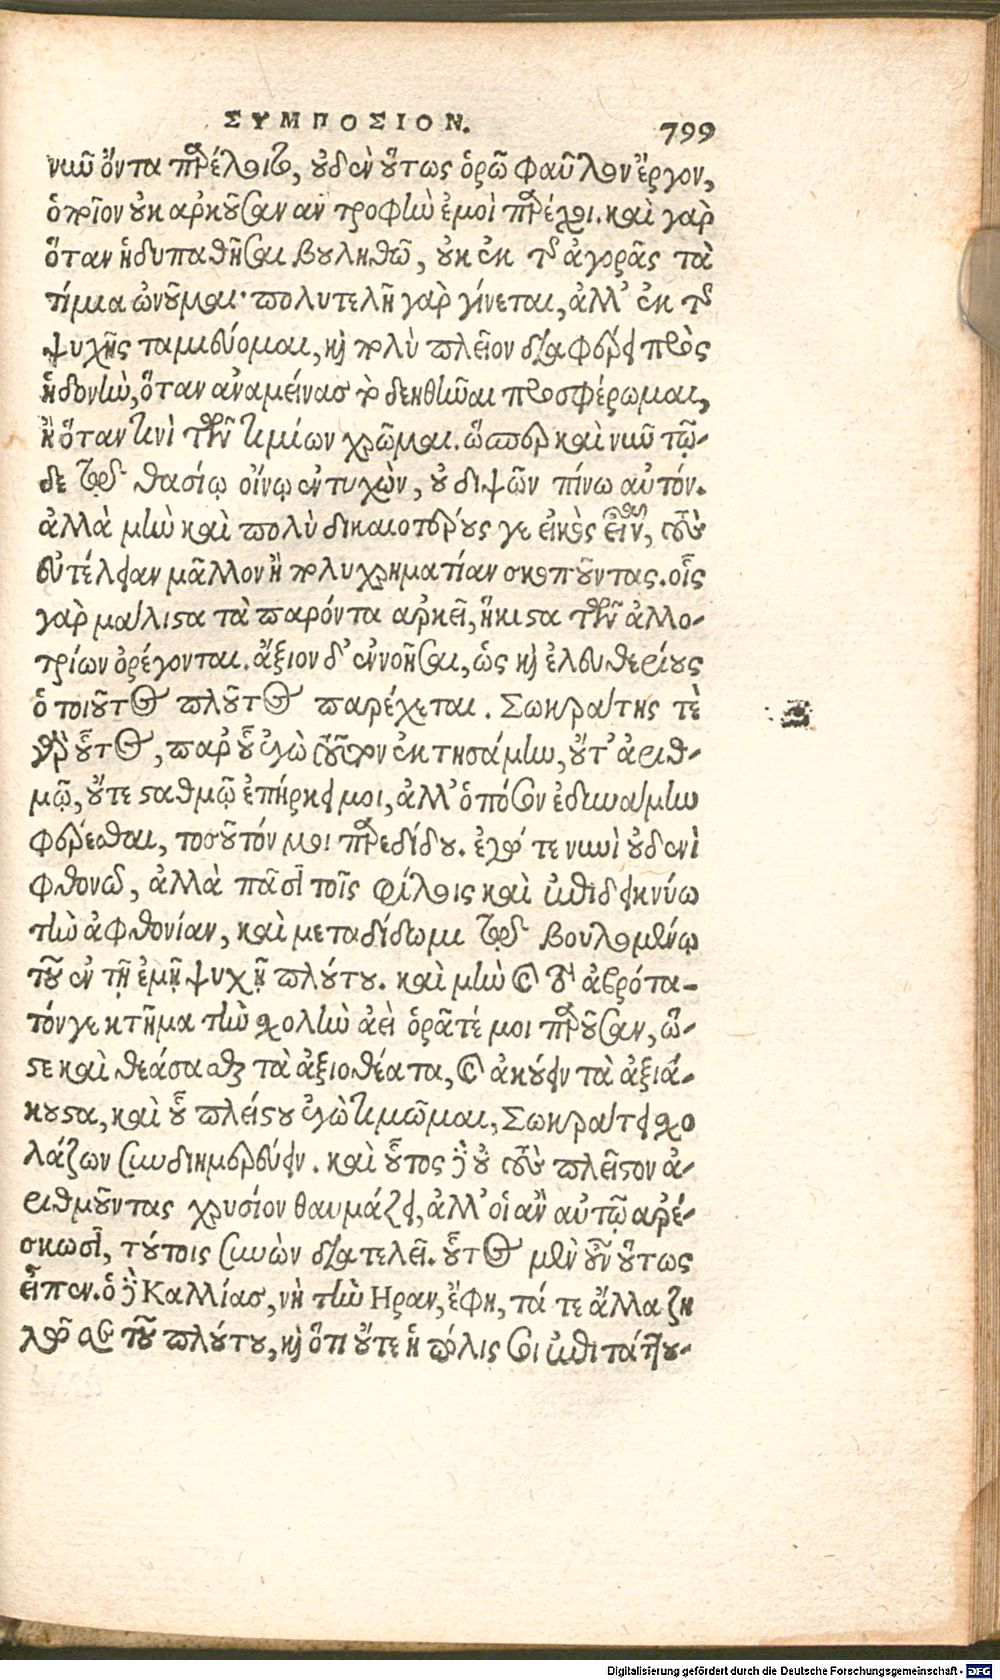 ΣΥΜΠΟΣΙΟΝ. 799
νιῦ ὄντα παρέλοιτο, οὐδὲν οὕτως ὁρῶ φαῦλον ἔργον,
ὁποῖον οὐκ ἀρκοῦσαν ἂν τροφὴν ἐμοὶ παρέχοι. καὶ γὰρ
ὅταν ἡδυπαθῆσαι βουληθῶ, οὐκ ἐκ τῆς ἀγορᾶς τὰ
τίμια ὠνοῦμαι· πολυτελῆ γὰρ γίνεται, ἀλλ' ἐκ τῆς
ψυχῆς ταμιεύομαι, καὶ πολὺ πλεῖον διαφέρει πρὸς
ἡδονὴν, ὅταν ἀναμείνας τὸ δεηθῆναι προσφέρωμαι,
ἢ ὅταν τινὶ τῶν τιμίων χρῶμαι. ὥσπερ καὶ νῦν τῷ-
δε τῷ θασίῳ οἴνῳ ἐντυχὼν, οὐ διψῶν πίνω αὐτόν.
ἀλλὰ μὴν καὶ πολὺ δικαιοτέρους γε εἰκὸς εἶναι, τοὺς
εὐτέλειαν μᾶλλον ἢ πολυχρηματίαν σκοποῦντας. οἷς
γὰρ μάλιστα τὰ παρόντα ἀρκεῖ, ἥκιστα τῶν ἀλλο-
τρίων ὀρέγονται. ἄξιον δ' ἐννοῆσαι, ὡς καὶ ἐλευθερίους
ὁ τοιοῦτος πλοῦτος παρέχεται. Σωκράτης τὲ
γὰρ οὗτος, παρ' οὗ ἐγὼ τοῦτον ἐκτησάμην, οὔτ' ἀριθ-
μῷ, οὔτε σταθμῷ ἐπήρκει μοι, ἀλλ' ὁπόσον ἐδυνάμην
φέρεσθαι, τοσοῦτόν μοι παρεδίδου. ἐγώ τε νυνὶ οὐδενὶ
φθονῶ, ἀλλὰ πᾶσι τοῖς φίλοις καὶ ἐπιδεικνύω
τὴν ἀφθονίαν, καὶ μεταδίδωμι τῷ βουλομένῳ
τοῦ ἐν τῇ ἐμῇ ψυχῇ πλούτου. καὶ μὴν καὶ τὸ ἁβρότα-
τόν γε κτῆμα τὴν σχολὴν ἀεὶ ὁρᾶτέ μοι παροῦσαν, ὥ-
στε καὶ θεάσασθαι τὰ ἀξιοθέατα, καὶ ἀκούειν τὰ ἀξιά-
κουστα, καὶ οὗ πλείστου ἐγὼ τιμῶμαι, Σωκράτει σχο
λάζων συνδιημερεύειν. καὶ οὗτος δὲ οὐ τοὺς πλεῖστον ἀ-
ριθμοῦντας χρυσίον θαυμάζει, ἀλλ' οἳ ἂν αὐτῷ ἀρέ-
σκωσι, τούτοις συνὼν διατελεῖ. οὗτος μὲν οὖν οὕτως
εἶπεν. ὁ δὲ Καλλίας, νὴ τὴν Ηραν, ἔφη, τά τε ἄλλα ζη
λῶ σε τοῦ πλούτου, καὶ ὅτι οὔτε ἡ πόλις σοι ἐπιτάττου-
Digitalisierung gefördert durch die Deutsche Forschungsgemeinschaft - DFG